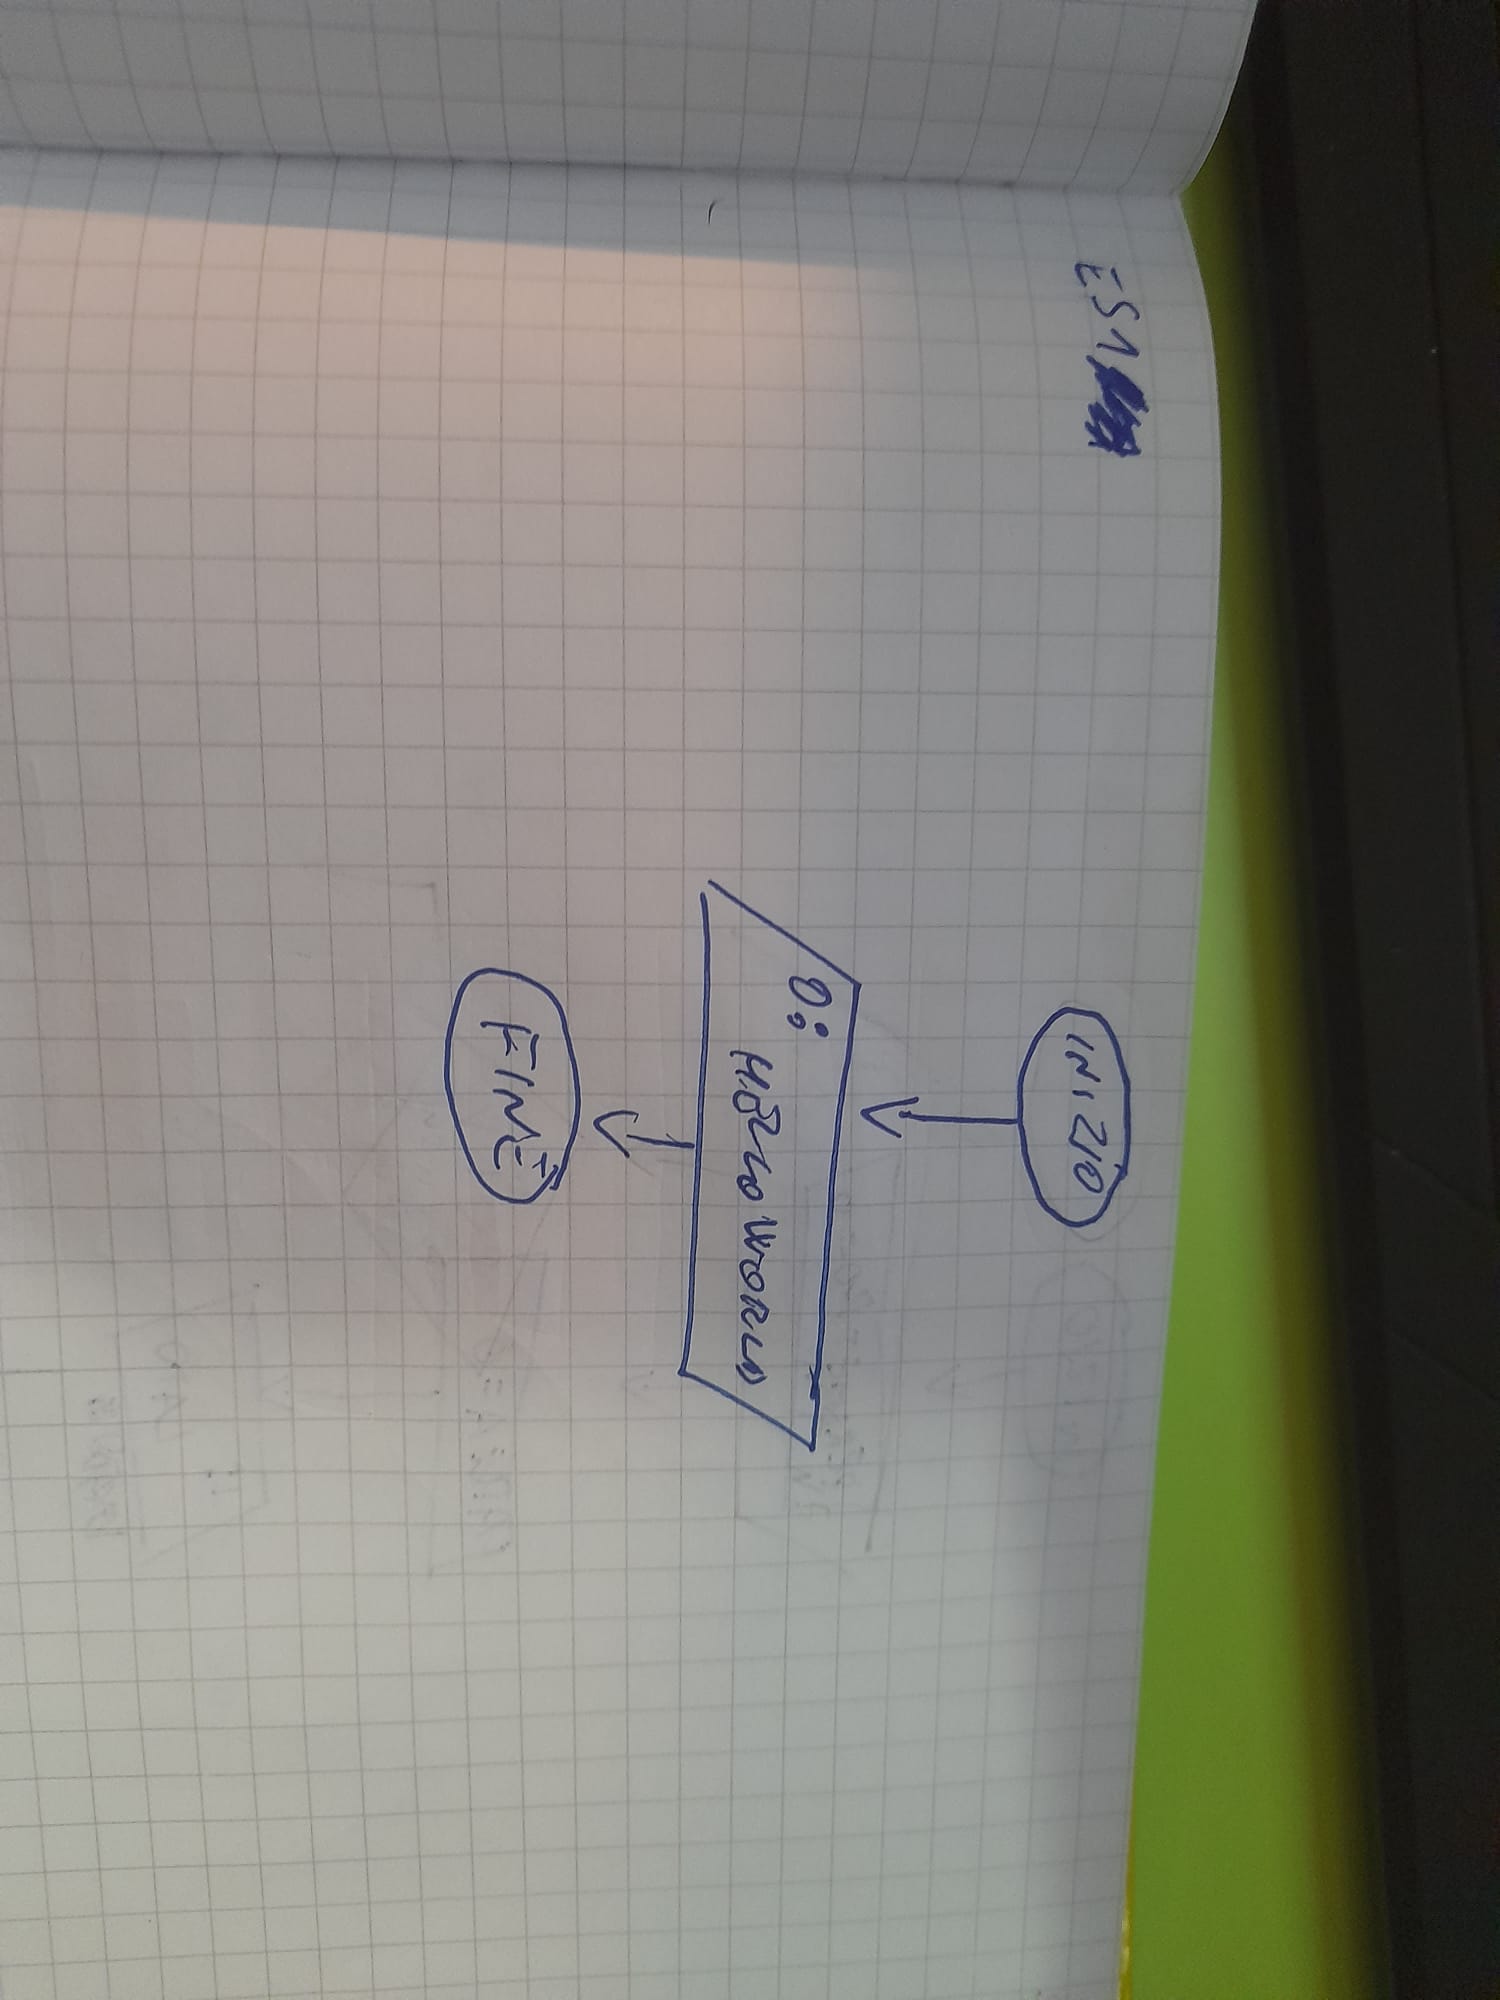 ES1
INIZIO
O: HELLO WORLD
FINE